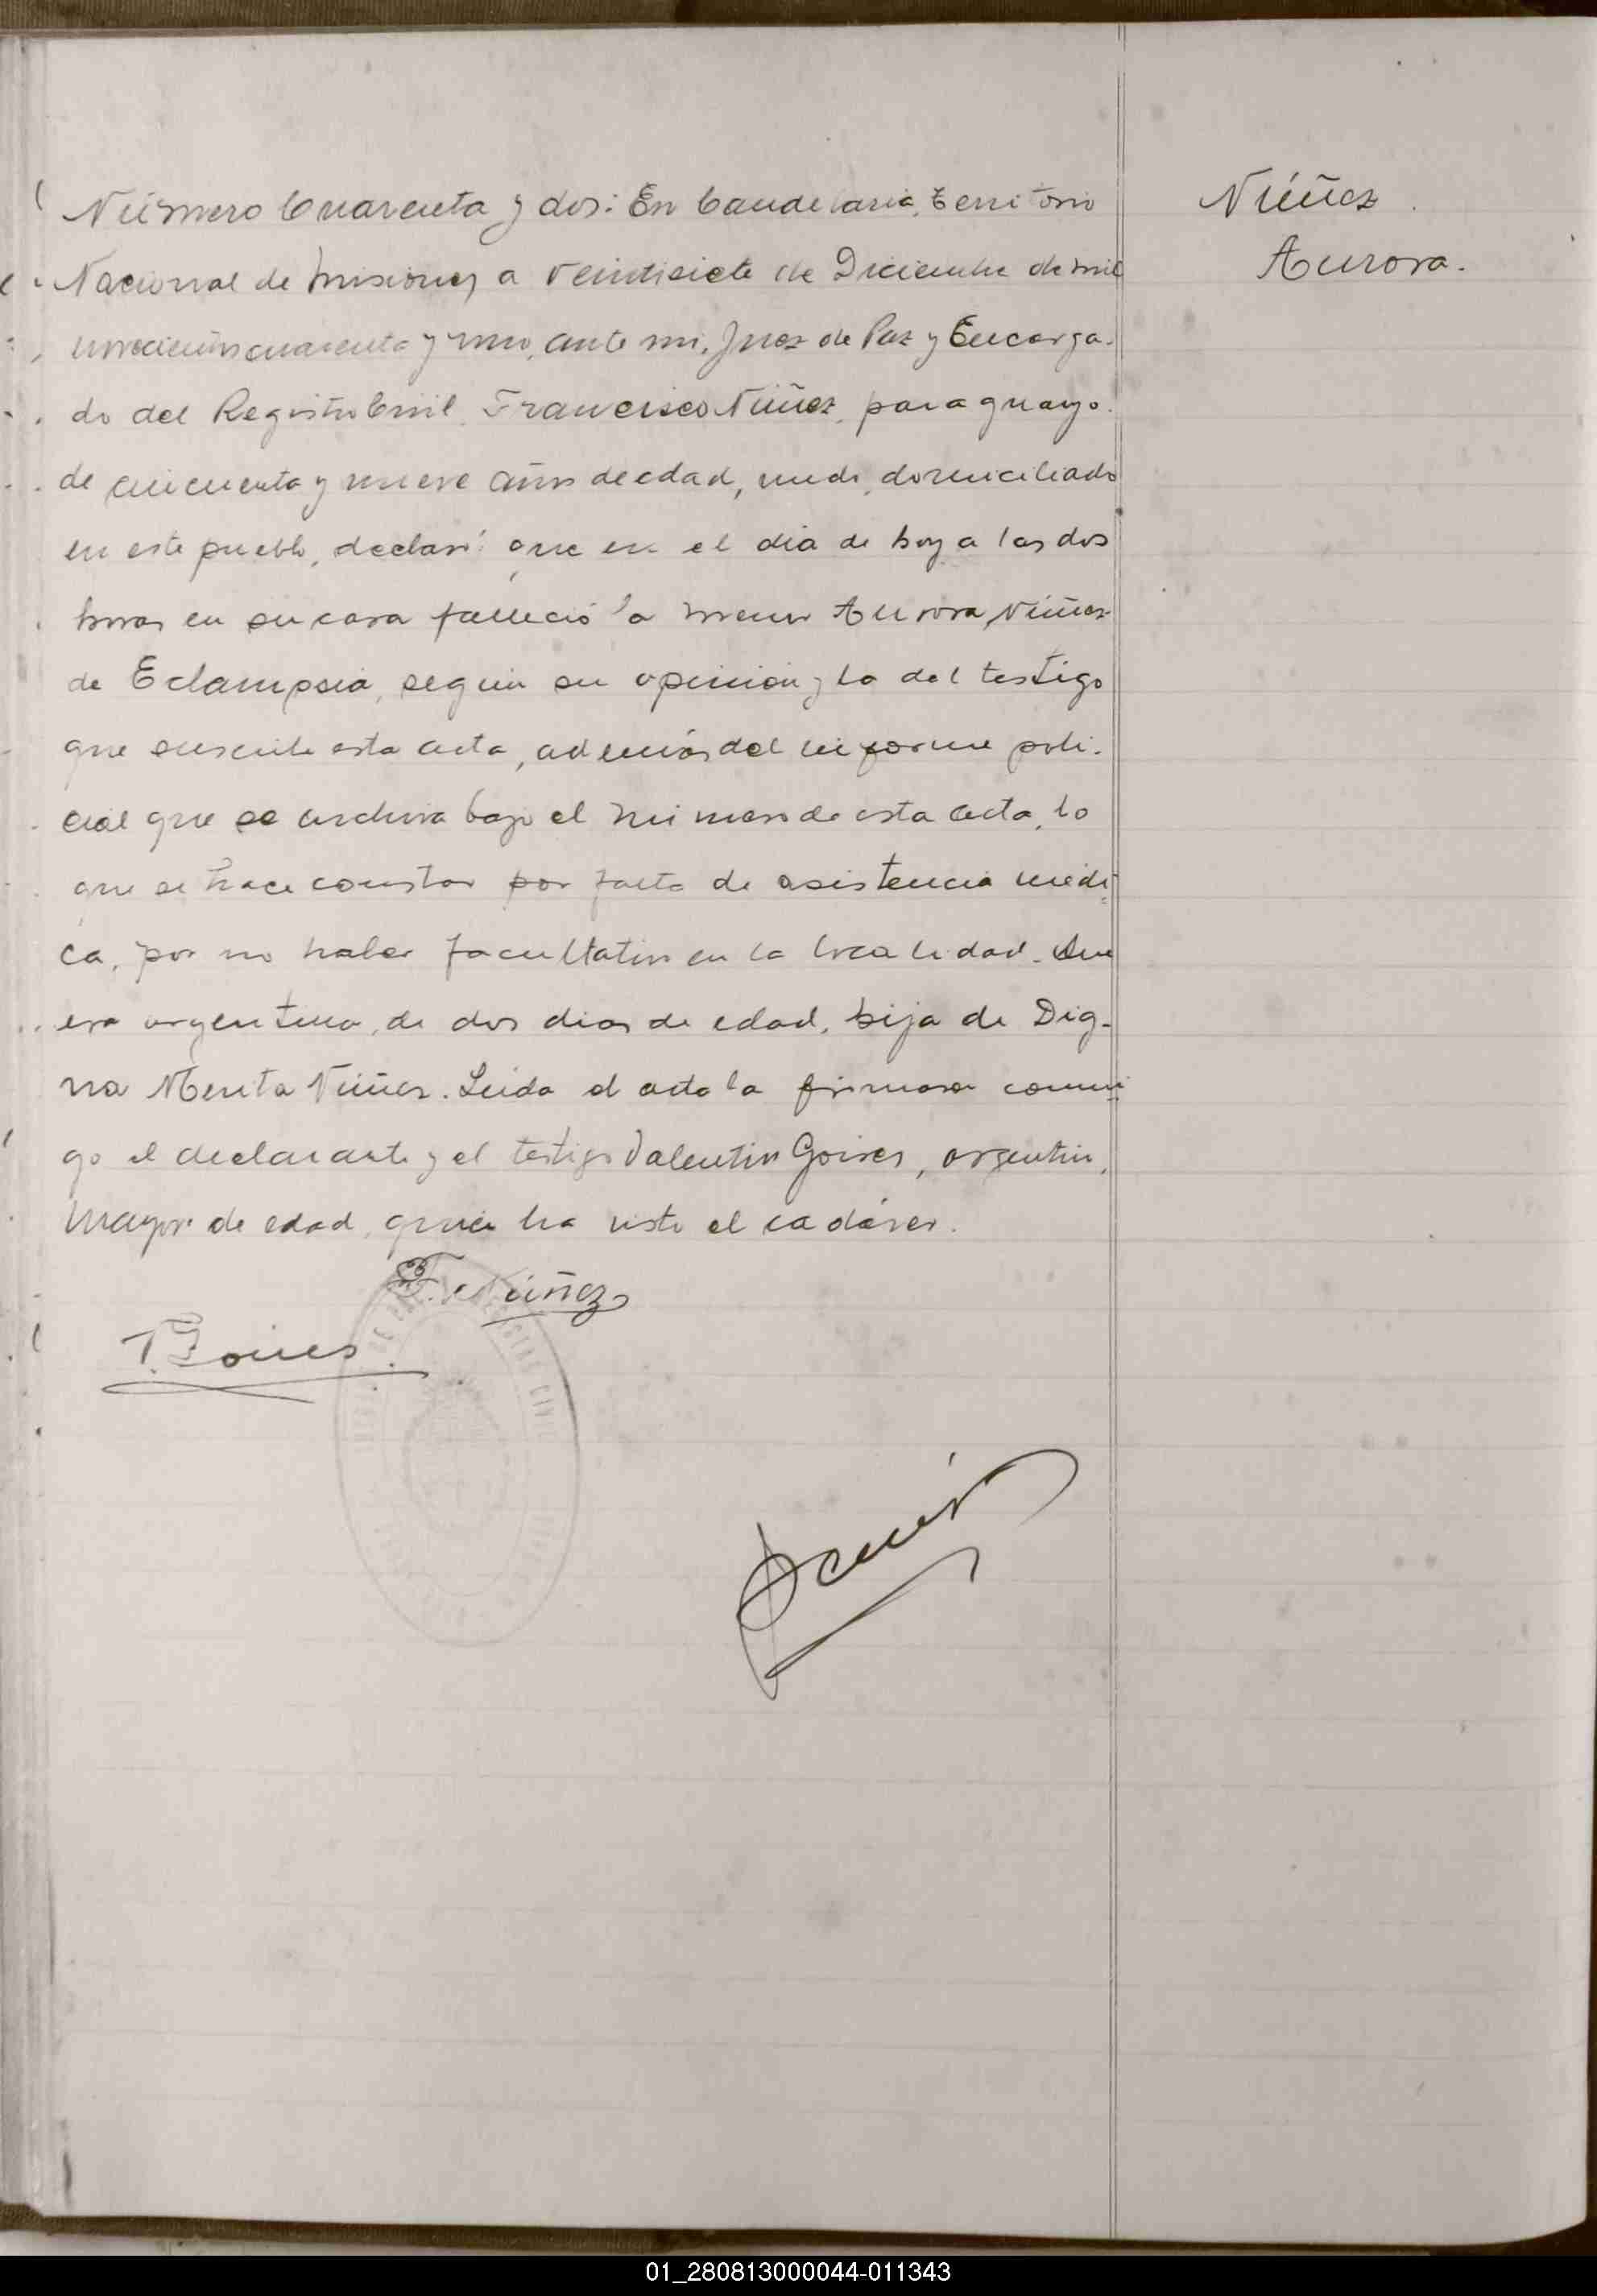 Número Cuarenta y dos: En Candelaria, Territorio
Nacional de Misiones a veintisiete de Diciembre de mil
novecientos cuarenta y uno, ante mi, Juez de Paz y Encarga-
do del Registro Civil, Francisco Núñez, paraguayo,
de cincuenta y nueve años de edad, domiciliado
en este pueblo, declaró: que en el dia de hoy a las dos
horas en su casa falleció la menor Aurora Núñez
de Eclampsia, según su opinión y la del testigo
que suscribe esta acta, además del informe poli-
cial que se archiva bajo el número de esta acta, lo
que se hace constar por falta de asistencia médi-
ca, por no haber facultativo en la localidad. Que
era argentina, de dos dias de edad, hija de Dig-
na Núñez. Leida el acta la firmaron conmi-
go el declarante y el testigo Valentin Goires, argentino,
mayor de edad, quien ha visto el cadáver.
F. Núñez
V. Goires.
Núñez
Aurora.
01_280813000044-011343